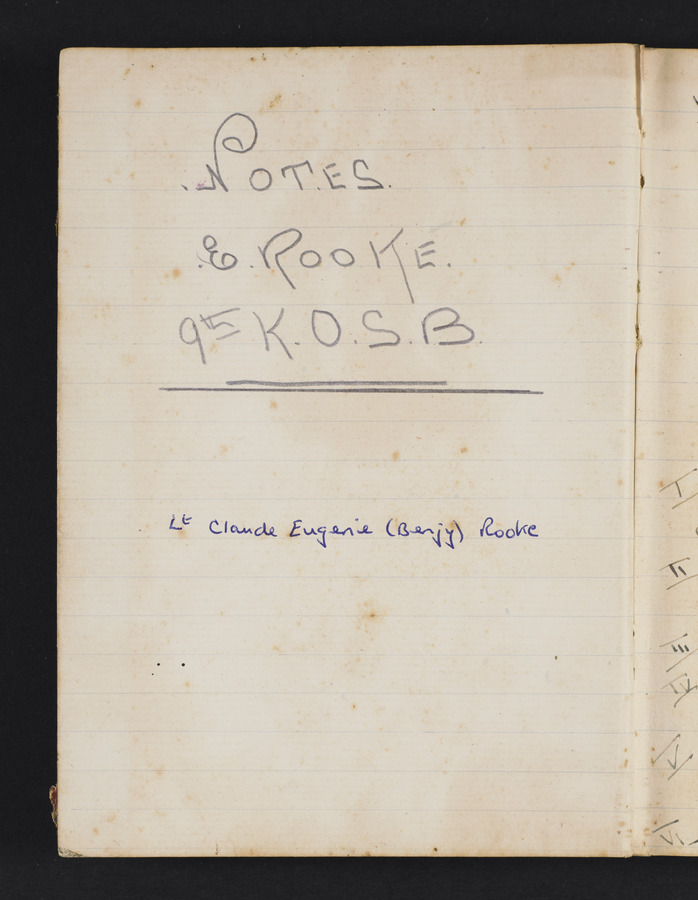 NOTES.
E. ROOKE.
9th K.O.S.B.
Lt Claude Eugenie (Benjy) Rooke
I
II
III
IV
V
VI